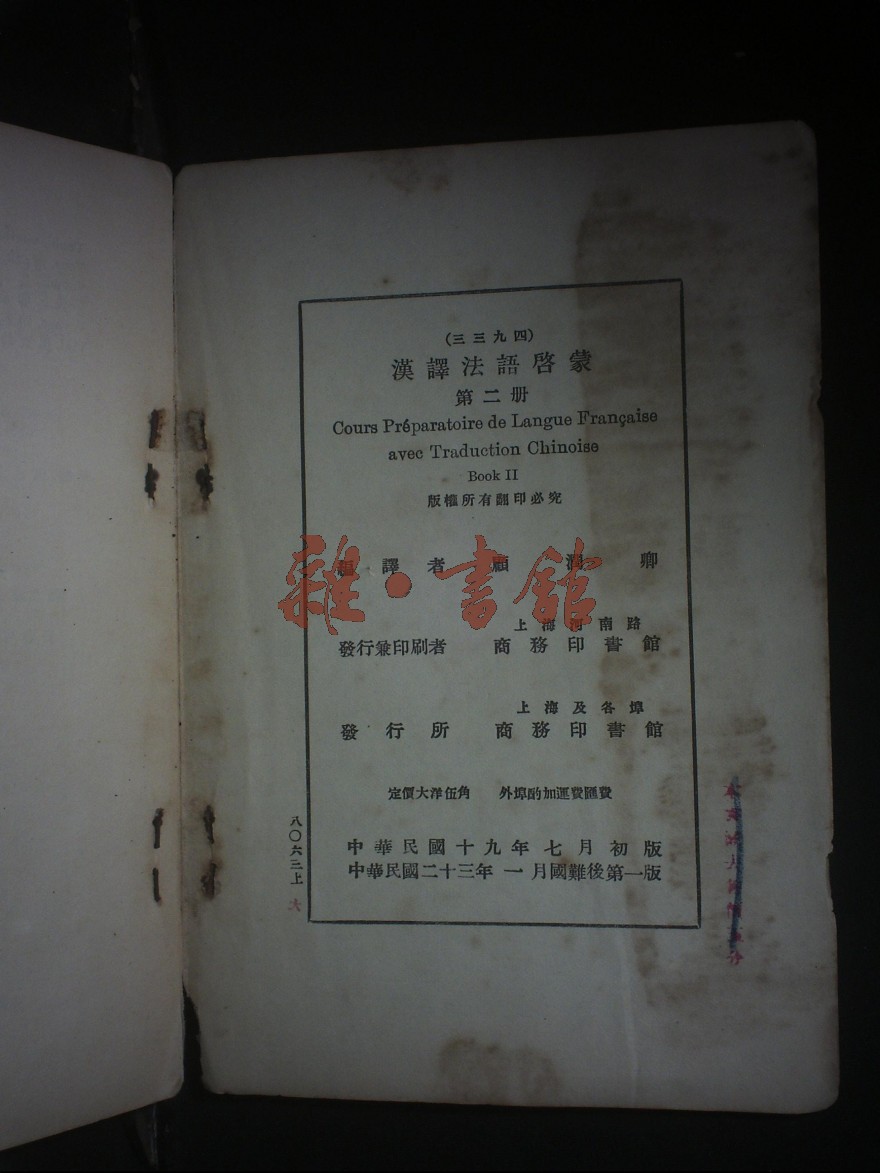 (三三九四)
漢譯法語啓蒙
第二册
Cours Préparatoire de Langue Française
avec Traduction Chinoise
Book II
版權所有翻印必究
編譯者 顧潤卿
上海河南路
發行兼印刷者 商務印書館
上海及各埠
發行所 商務印書館
定價大洋伍角 外埠酌加運費匯費
中華民國十九年七月初版
中華民國二十三年一月國難後第一版
八〇六三上 大
雜·書館